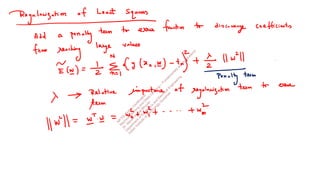 Regularization of Least Squares
Add a penalty term to error function to discourage coefficients
from reaching large values
Ẽ(w) = 1/2 Σ_{n=1}^{N} { y(x_n, w) - t_n }² + λ/2 ||w²||
Penalty term
λ → Relative importance of regularization term to error
term
||w²|| = wᵀw = w₀² + w₁² + ..... + w_m²